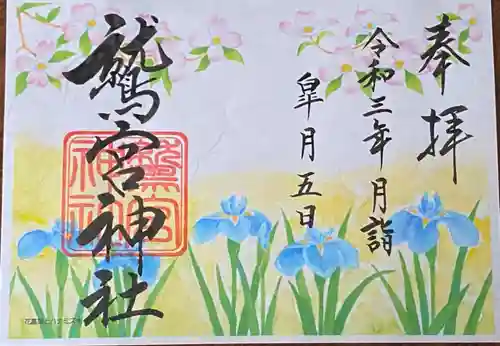 奉拝
令和三年月詣
皐月五日
鷲宮神社
鷲宮神社